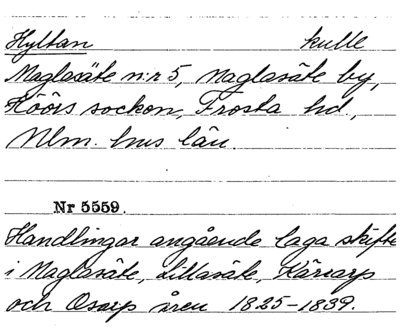 Hyltan kulle
Maglasäte n:r 5, Maglasäte by,
Höörs socken, Frosta hd,
Mlm. hus län.
Nr 5559.
Handlingar angående laga skifte
i Maglasäte, Lillasäte, Kärrarp
och Osarp åren 1825-1839.